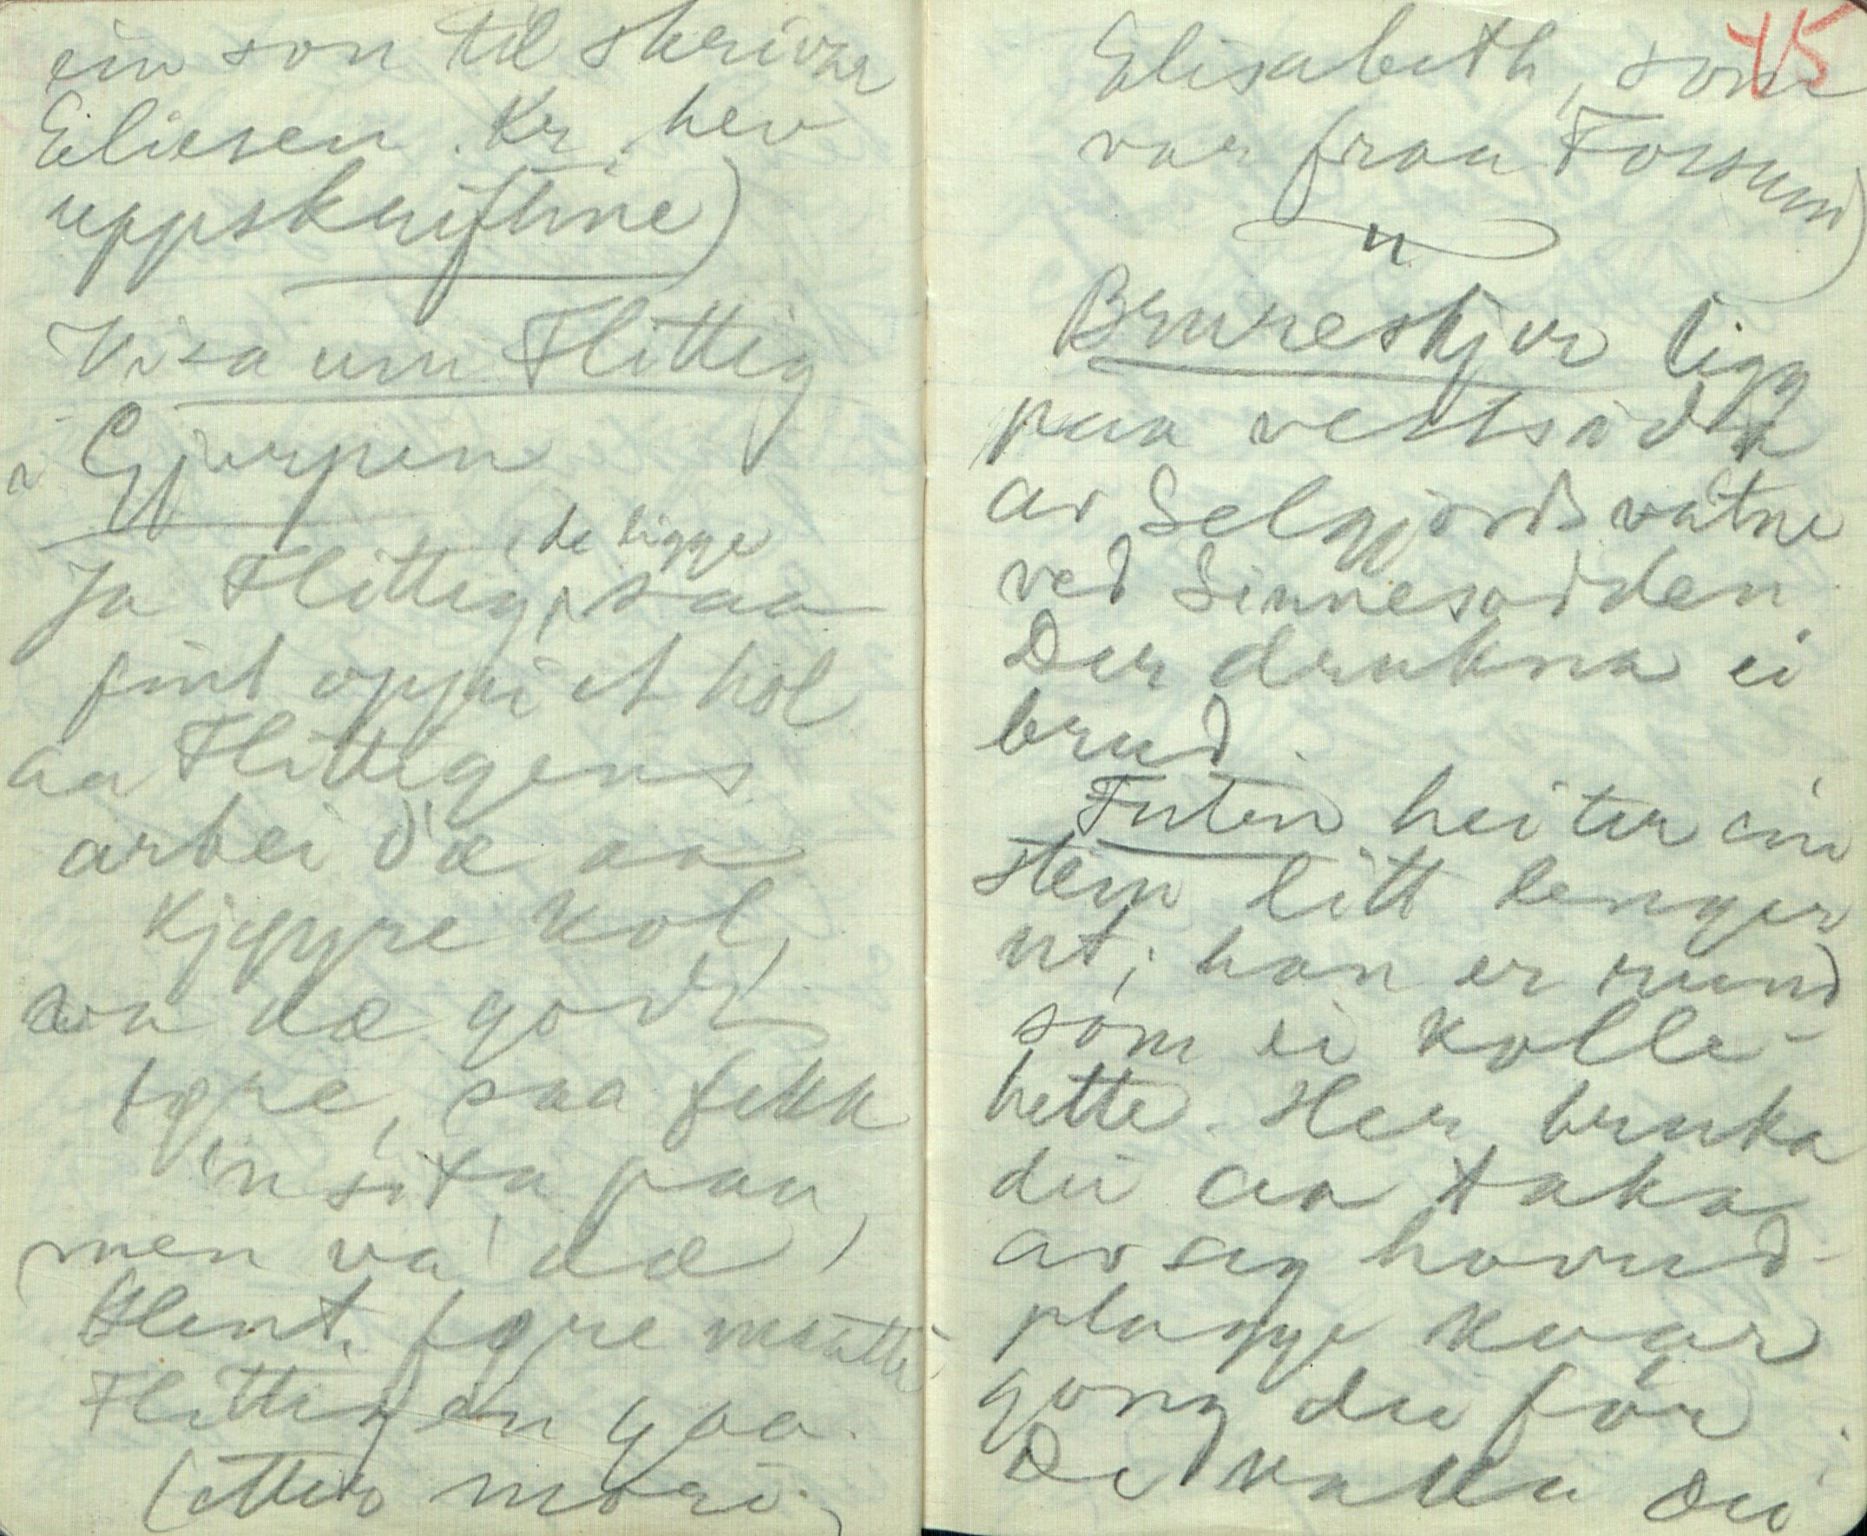 ein son til skrivar
Eliesen. Kr. hev
uppskriftine)
Visa um Flittig
i Gjerpen
de ligge
Ja Flittig, saa
fint oppi et hol
aa Flittigens
arbei' dæ aa
kjøyre kol,
aa va dæ godt
føre, saa fekk
'n sita paa,
men va' dæ
klent føre måtte
Flittigen gaa.
(etter mori,
45
Elisabeth, som
var fraa Fossum)
"
Brureskjer ligg
paa vestsida
av Seljordsvatne
ved Sinnesodden.
Der drukna ei
brud.
Futen heiter ein
stein litt lenger
ut; han er rund
som ei kolle-
hette. Her bruka
dei aa taka
av seg hovud-
plagge kvar
gong dei fór
De kalla dei